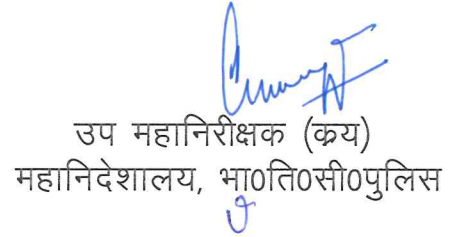 उप महानिरीक्षक (क्रय)
महानिदेशालय, भा0ति0सी0पुलिस